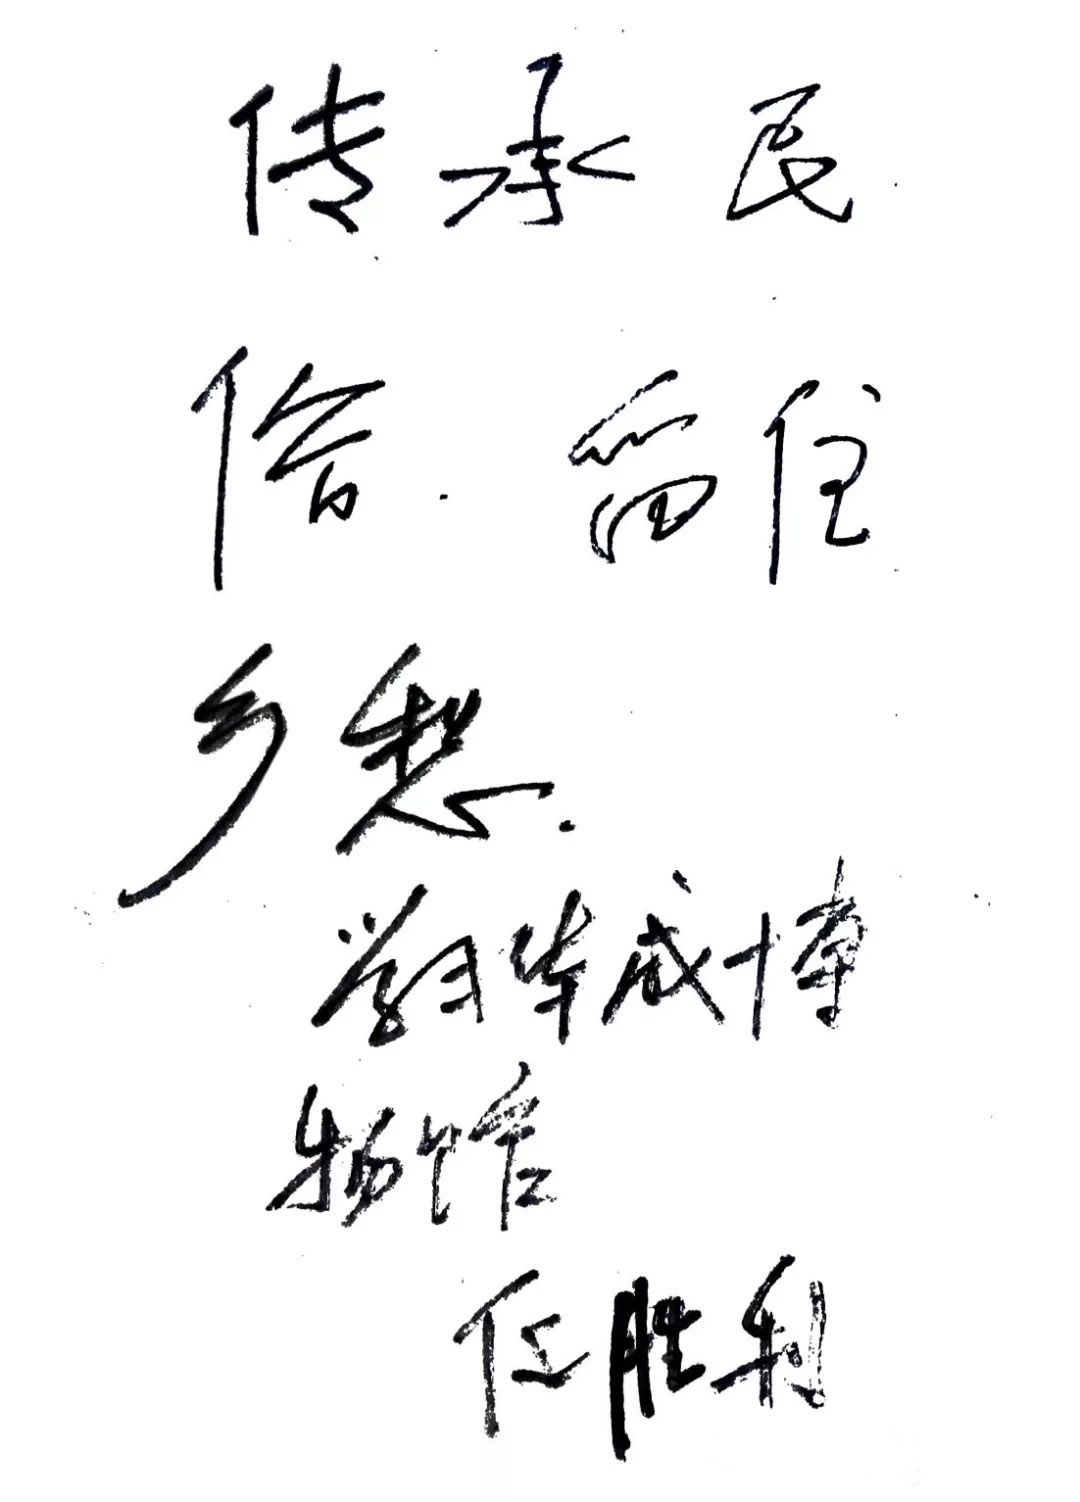 传承民
俗.留住
乡愁.
华博
物馆
任胜利